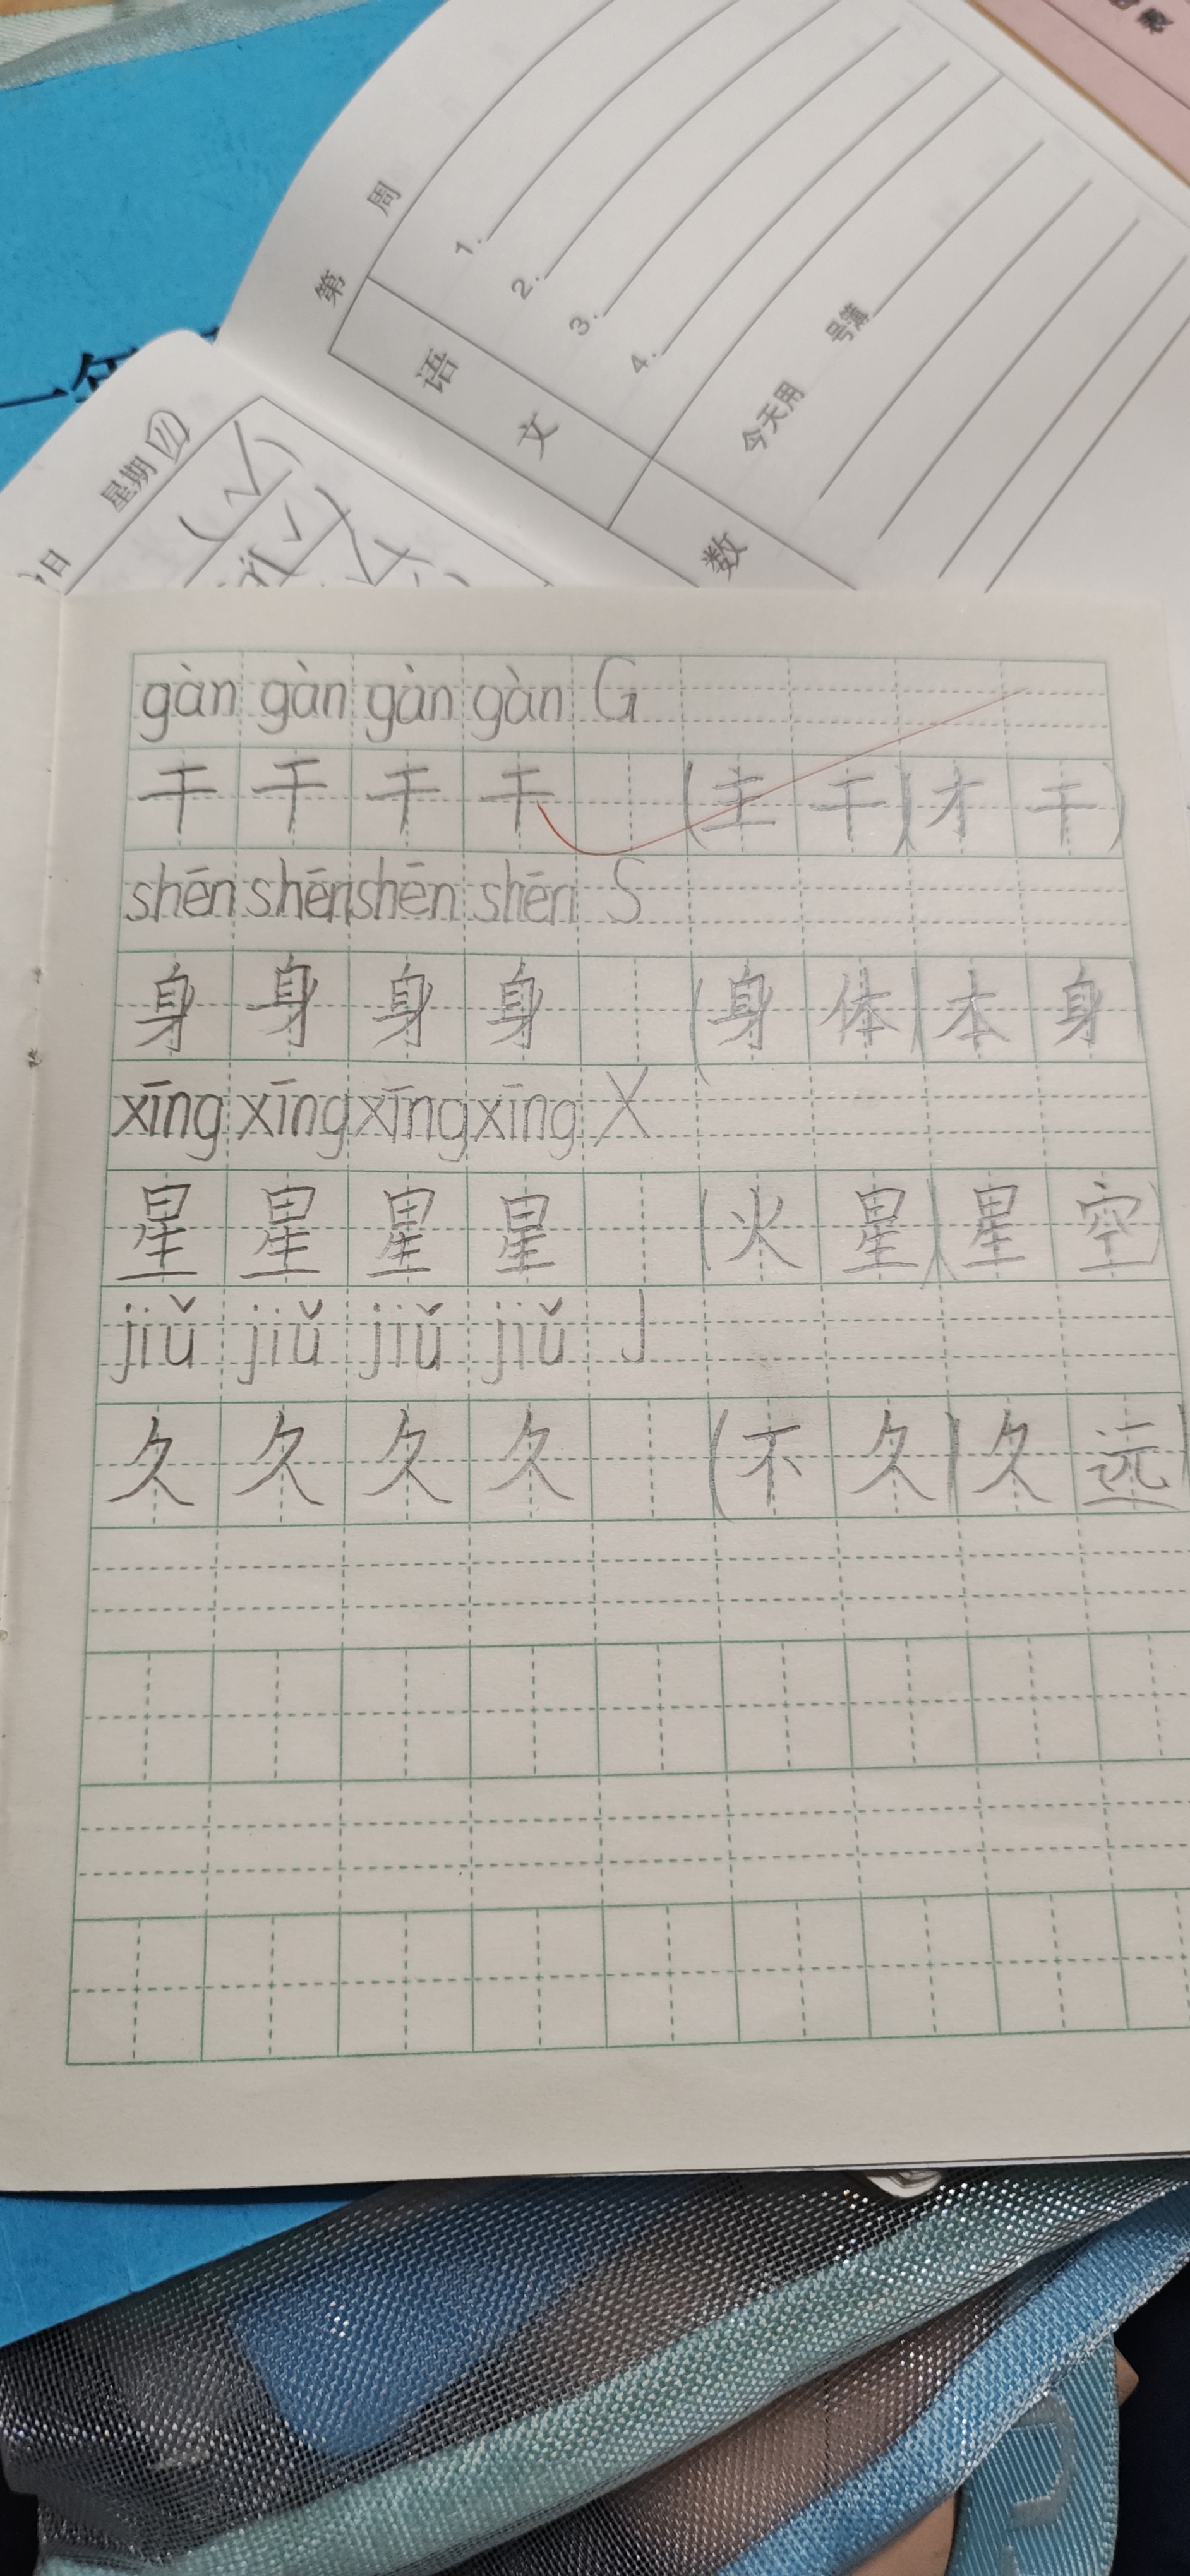 第 周
语文
1.
2.
3.
4.
今天用 号簿
数
星期四
日
gàn gàn gàn gàn G
干 干 干 干 (主 干)(才 干)
shēn shēn shēn shēn S
身 身 身 身 (身 体)(本 身)
xīng xīng xīng xīng X
星 星 星 星 (火 星)(星 空)
jiǔ jiǔ jiǔ jiǔ J
久 久 久 久 (不 久)(久 远)